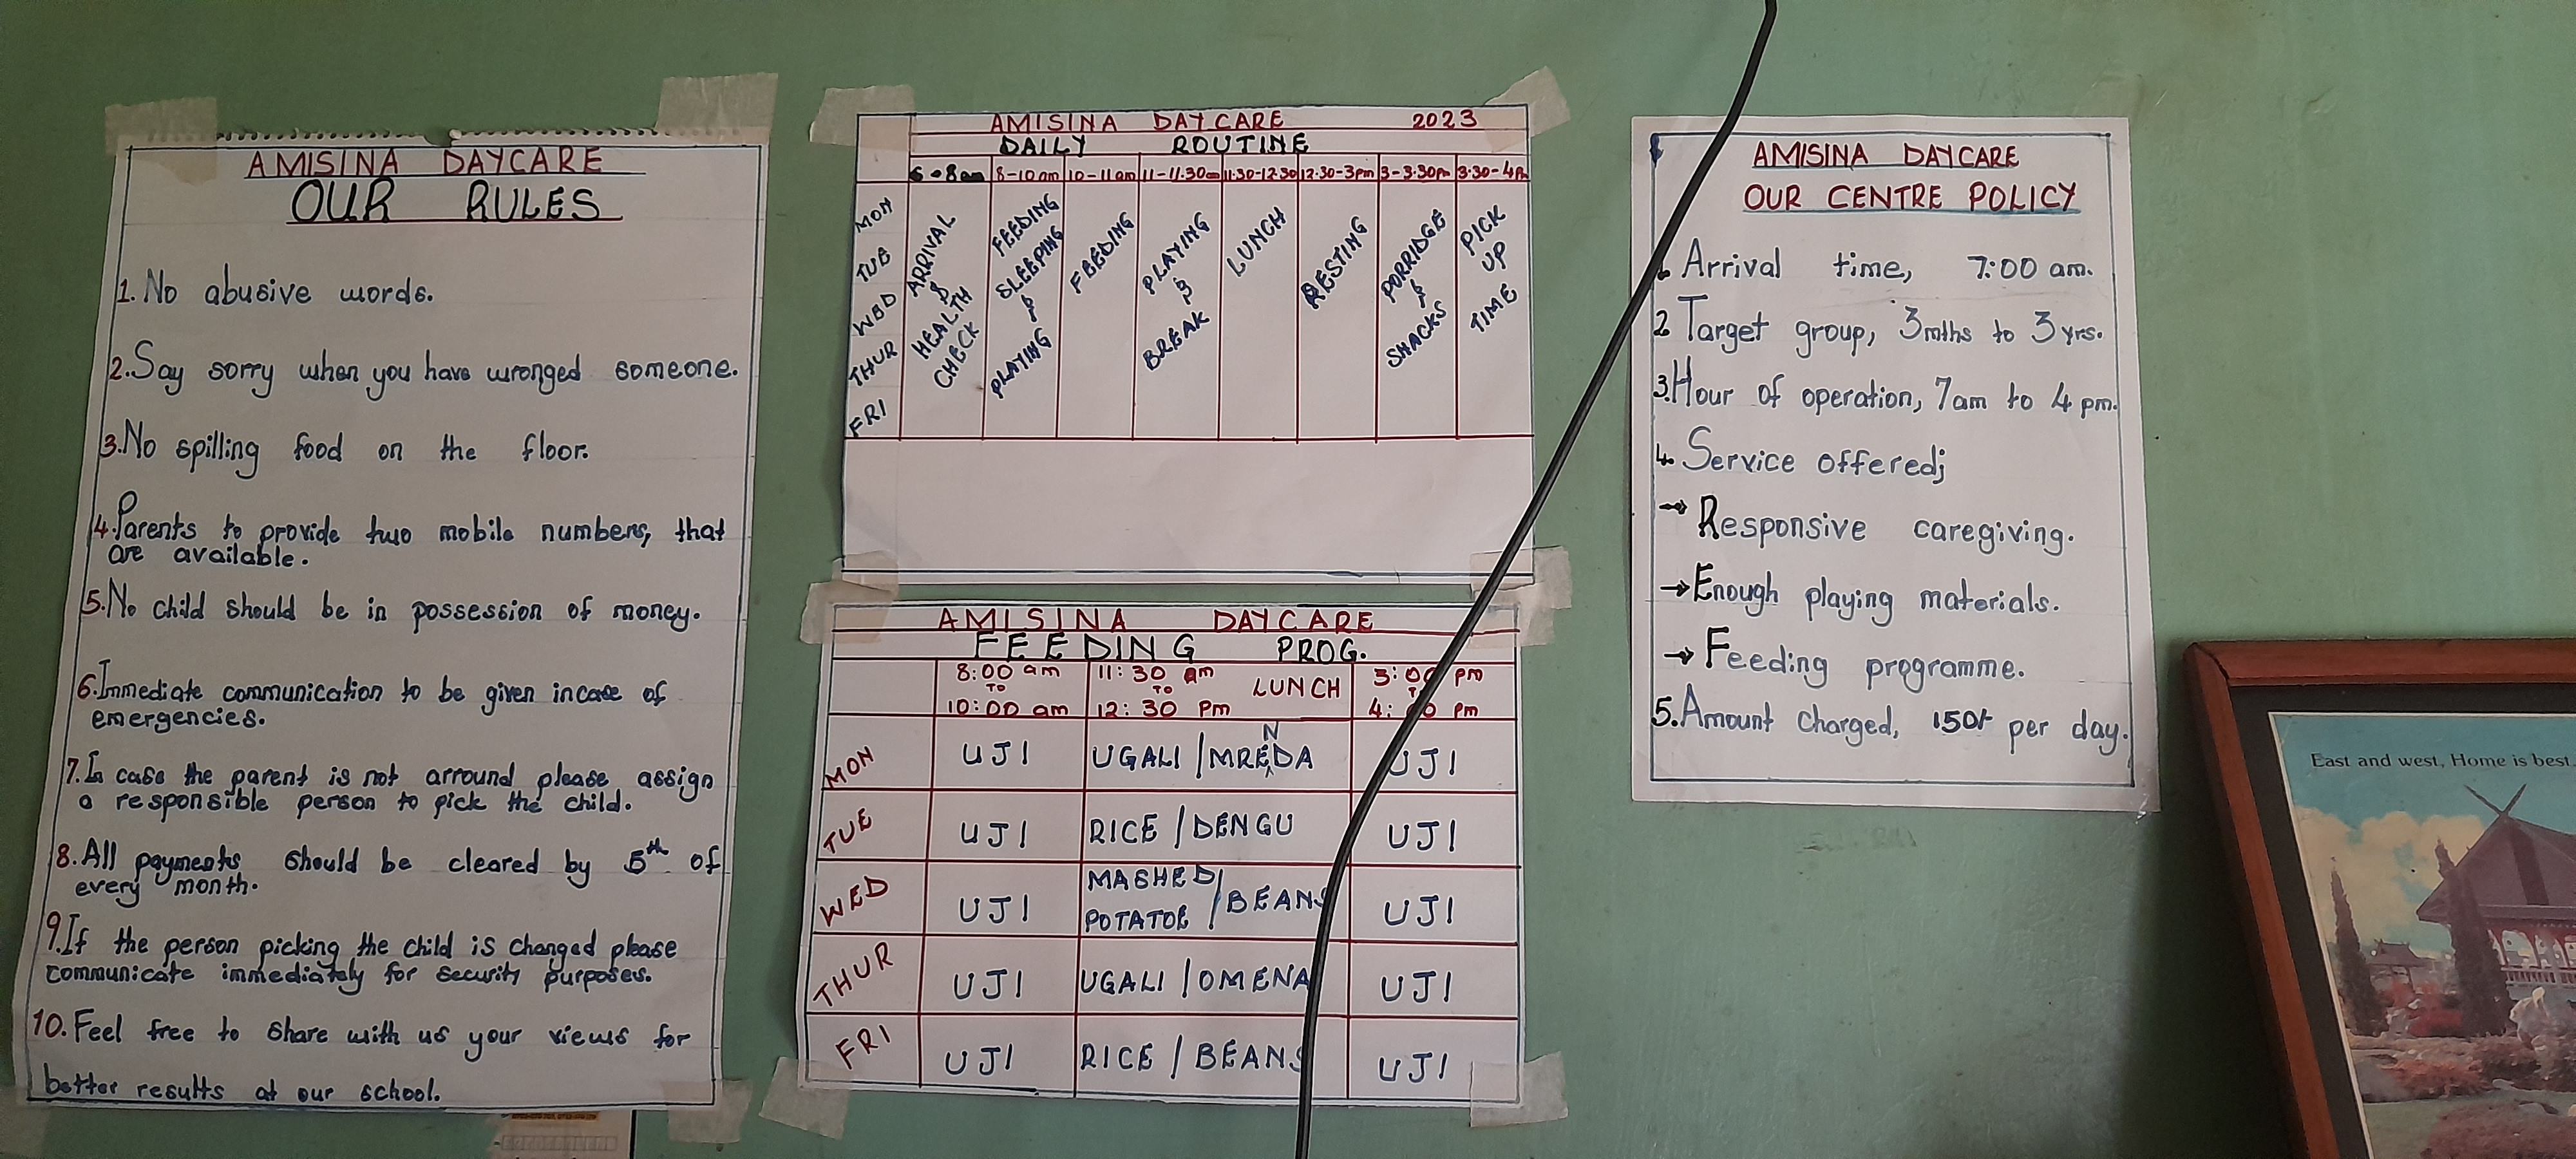 AMISINA DAYCARE
OUR RULES
1. No abusive words.
2. Say sorry when you have wronged someone.
3. No spilling food on the floor.
4. Parents to provide two mobile numbers, that
are available.
5. No child should be in possession of money.
6. Immediate communication to be given incase of
emergencies.
7. In case the parent is not arround please assign
a responsible person to pick the child.
8. All payments should be cleared by 5th of
every month.
9. If the person picking the child is changed please
communicate immediately for security purposes.
10. Feel free to share with us your views for
better results at our school.
AMISINA DAYCARE 2023
DAILY ROUTINE
6-8am 8-10am 10-11am 11-11.30am 11.30-12.30 12.30-3pm 3-3.30pm 3.30-4pm
MON
TUE
WED
THUR
FRI
ARRIVAL
&
HEALTH
CHECK
FEEDING
SLEEPING
&
PLAYING
FEEDING
PLAYING
&
BREAK
LUNCH
RESTING
PORRIDGE
&
SNACKS
PICK
UP
TIME
AMISINA DAYCARE
FEEDING PROG.
8:00 am TO 10:00 am 11:30 am TO 12:30 Pm LUNCH 3:00 pm TO 4:00 pm
MON UJI UGALI / MRENDA UJI
TUE UJI RICE / DENGU UJI
WED UJI MASHED POTATOE / BEANS UJI
THUR UJI UGALI / OMENA UJI
FRI UJI RICE / BEANS UJI
AMISINA DAYCARE
OUR CENTRE POLICY
1. Arrival time, 7:00 am.
2 Target group, 3mths to 3yrs.
3. Hour of operation, 7am to 4 pm.
4. Service offered;
→ Responsive caregiving.
→ Enough playing materials.
→ Feeding programme.
5. Amount charged, 150/- per day.
East and west, Home is best.